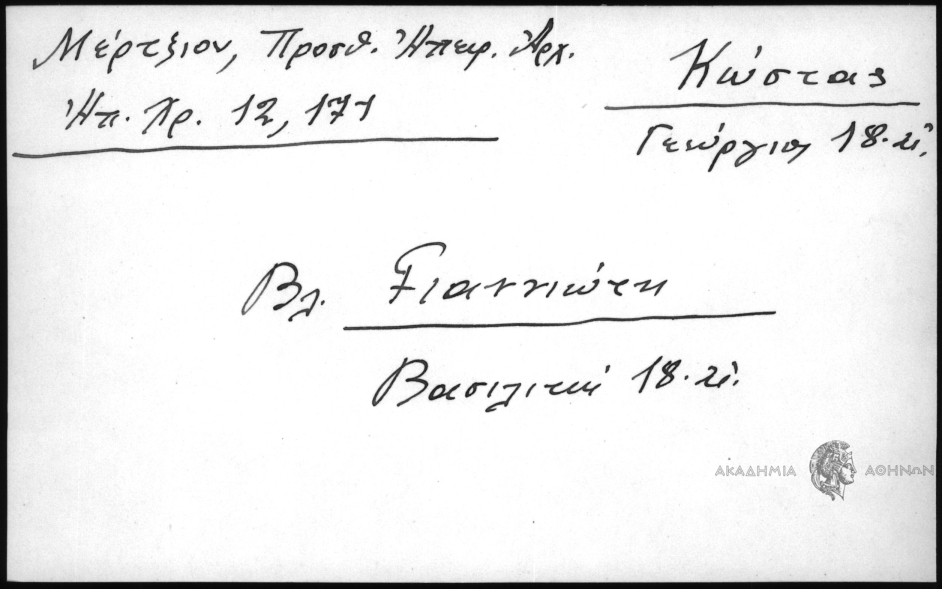 Μέρτζιον, Προσθ. Ἠπειρ. Ἀρχ.
Ἠπ. Χρ. 12, 171
Κώστας
Γεώργιος 18. αἰ.
Βλ. Γιαννιώτη
Βασιλική 18. αἰ.
ΑΚΑΔΗΜΙΑ ΑΘΗΝΩΝ